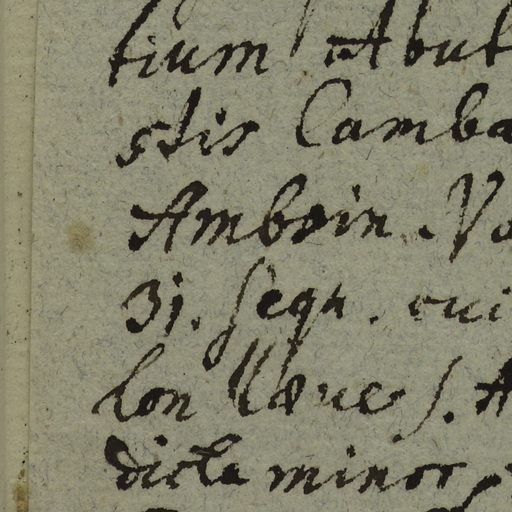 tium Abut
stis Camba
Amboin. Vo
31. seqq. cui
lon Uaue s. A
dicta minor